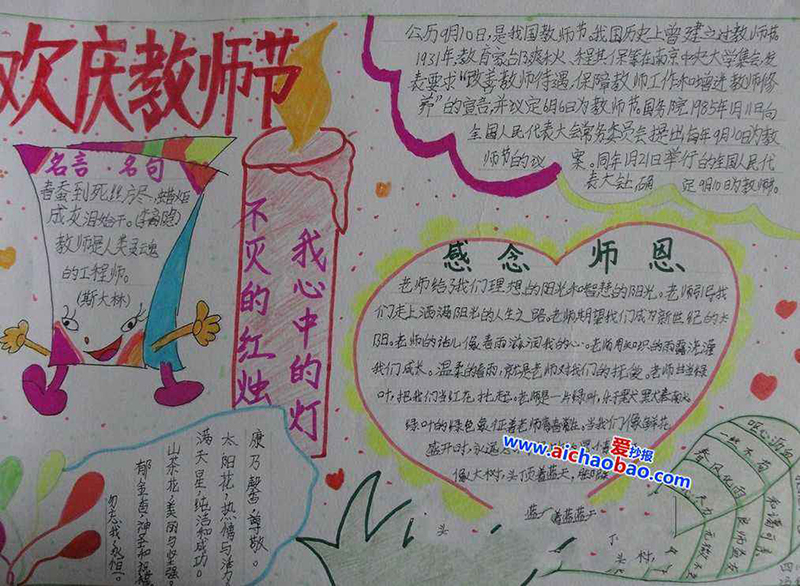 欢庆教师节
名言·名句
春蚕到死丝方尽,蜡炬
成灰泪始干。(李商隐)
教师是人类灵魂
的工程师。
(斯大林)
不灭的红烛
我心中的灯
公历9月10日,是我国教师节。我国历史上曾建立过教师节
1931年,教育家邰爽秋、程其保等在南京中央大学集会,发
表要求“改善教师待遇,保障教师工作和增进教师修
养”的宣言,并议定6月6日为教师节。国务院1985年1月11日向
全国人民代表大会常务委员会提出每年9月10日为教
师节的议案。同年1月21日举行的全国人民代
表大会确定9月10日为教师。
感念师恩
老师给了我们理想的阳光和智慧的阳光。老师引导我
们走上洒满阳光的人生之路。老师期望我们成为新世纪的太
阳。老师的话儿像春雨滋润我的心。老师用知识的雨露浇灌
我们成长。温柔的春雨,就是老师对我们的抚爱。老师甘当绿
叶,把我们当红花,扎起。老师是一片绿叶,
绿叶的绿色象征着老师
盛开时,永远
像大树,头顶着蓝天,
蓝
着蓝蓝天
头
下
头树
康乃馨:尊敬。
太阳花:热情与活力
满天星:纯洁和成功。
山茶花:美丽与坚强
郁金香:神圣和祝福
勿忘我:永恒。
春风化雨
良师益友
www.aichaobao.com
爱抄报